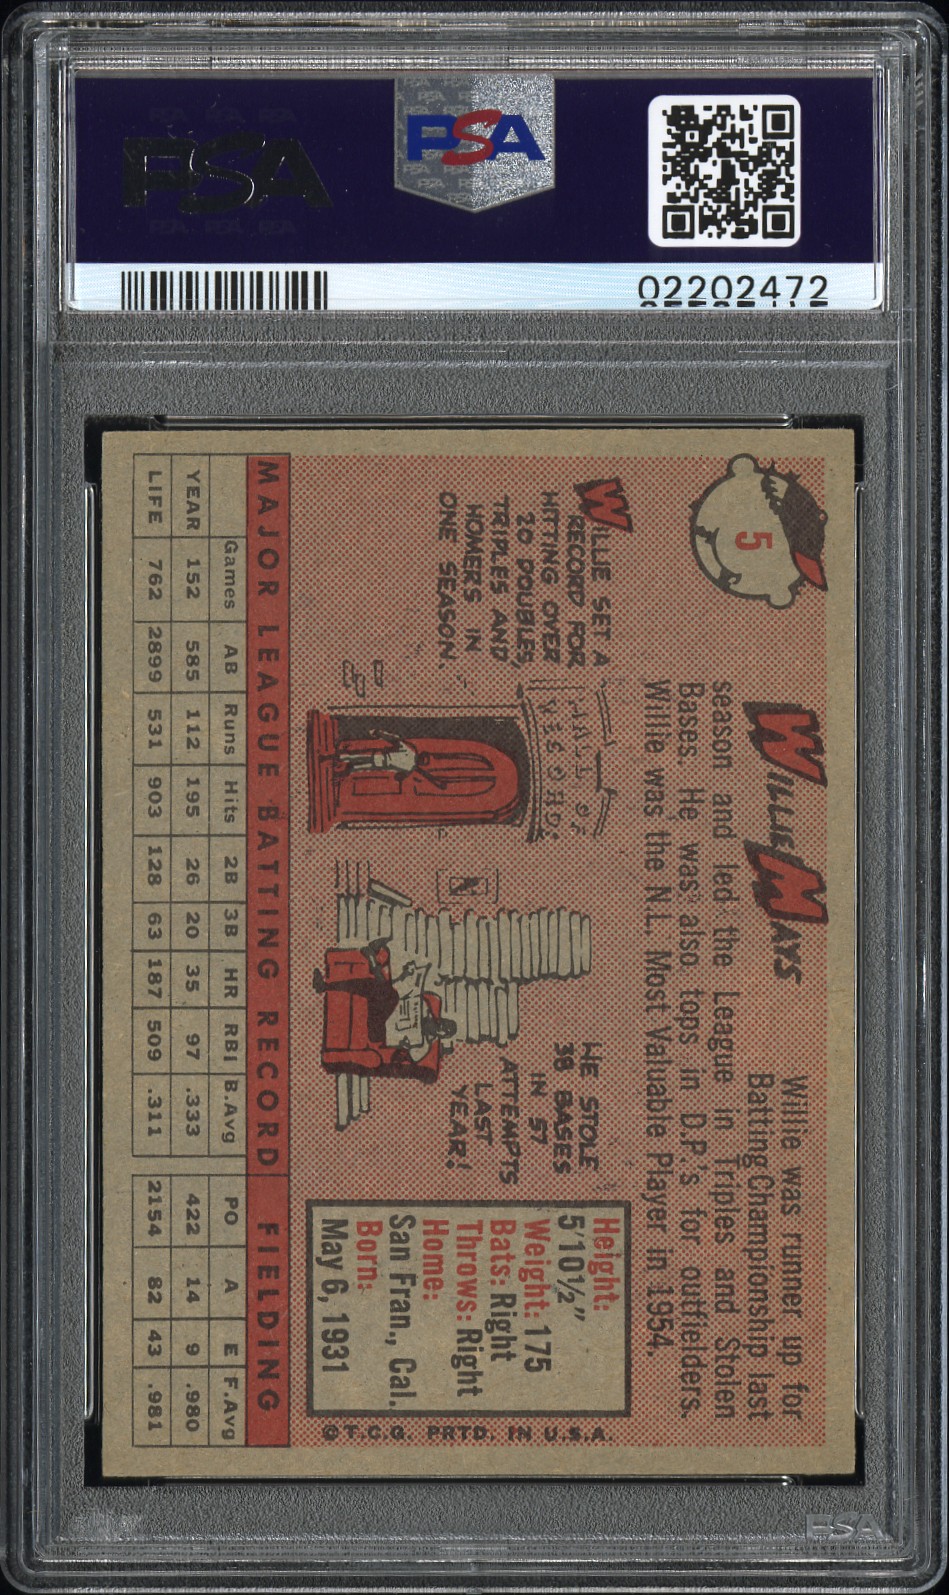 PSA
PSA
02202472
5
WILLIE MAYS
Willie was runner up for
Batting Championship last
season and led the League in Triples and Stolen
Bases. He was also tops in D.P.'s for outfielders.
Willie was the N.L. Most Valuable Player in 1954.
WILLIE SET A
RECORD FOR
HITTING OVER
20 DOUBLES,
TRIPLES AND
HOMERS IN
ONE SEASON.
HALL OF
RECORDS
N
HE STOLE
38 BASES
IN 57
ATTEMPTS
LAST
YEAR!
Height:
5'10½"
Weight: 175
Bats: Right
Throws: Right
Home:
San Fran., Cal.
Born:
May 6, 1931
©T.C.G. PRTD. IN U.S.A.
MAJOR LEAGUE BATTING RECORD FIELDING
Games AB Runs Hits 2B 3B HR RBI B.Avg PO A E F.Avg
YEAR 152 585 112 195 26 20 35 97 .333 422 14 9 .980
LIFE 762 2899 531 903 128 63 187 509 .311 2154 82 43 .981
PSA